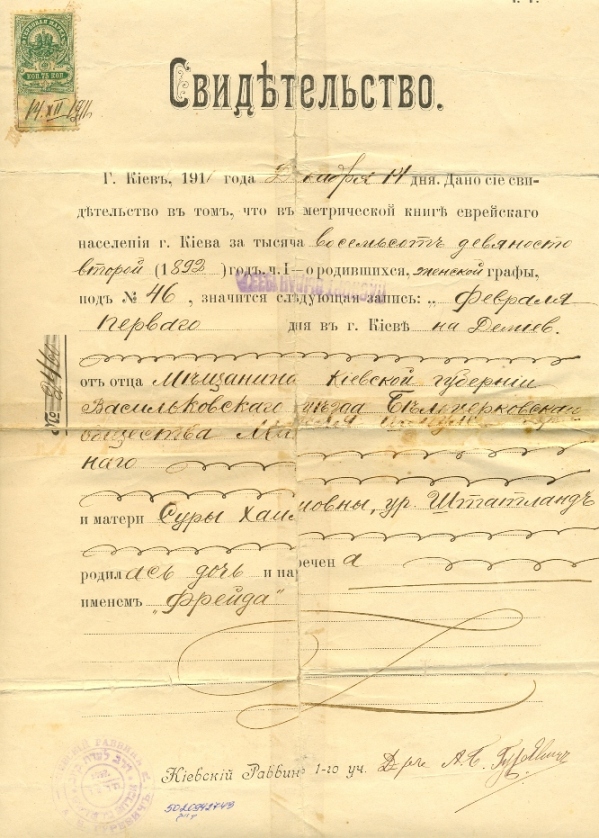 КОП 75 КОП
14.XII 1911
Свидѣтельство.
Г. Кіевъ, 1911 года Декабря 14 дня. Дано сіе сви-
дѣтельство въ томъ, что въ метрической книгѣ еврейскаго
населенія г. Кіева за тысяча восемьсотъ девяносто
второй (1892) годъ, ч. I—о родившихся, женской графы,
подъ № 46, значится слѣдующая запись: „ Февраля
перваго дня въ г. Кіевѣ на Деміев.
отъ отца Мѣщанина Кіевской губерніи
Васильковскаго уѣзда Бѣлоцерковскаго
общества
наго
и матери Суры Хаимовны, ур. Штатландъ
родилась дочь и наречена
именемъ „Фрейда"
Кіевскій Раввинъ 1-го уч. А. Б. Гуревичъ
5020342749